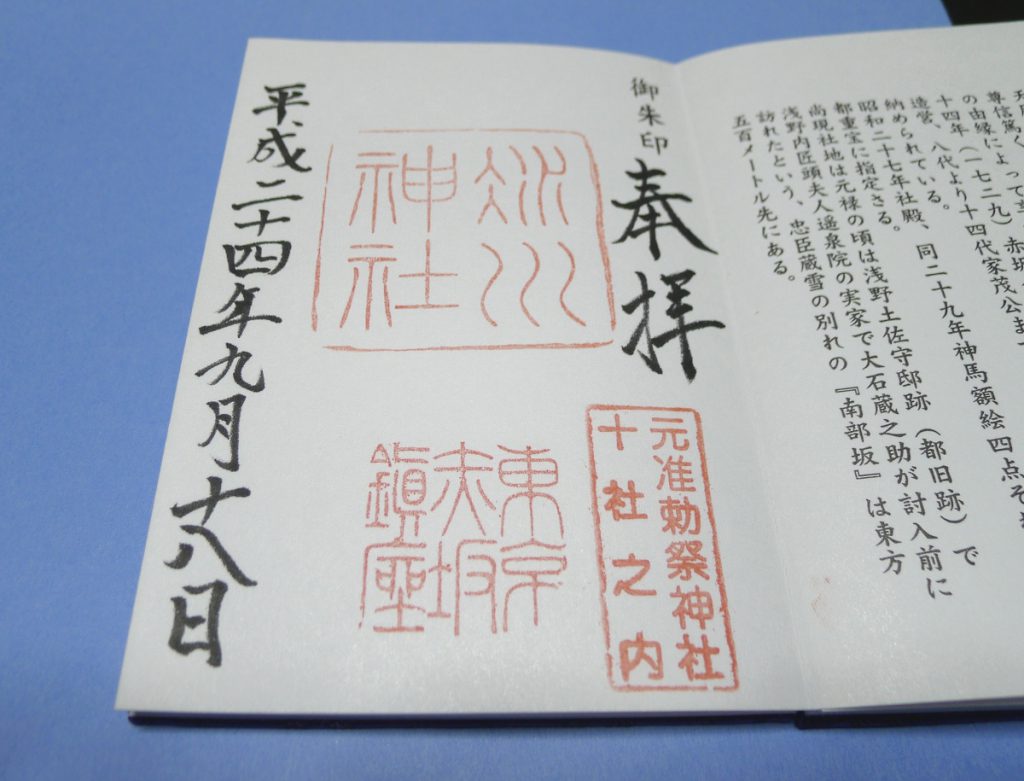 尊信篤く
の由縁によって
十四年(一七二九)赤坂
造営、八代より十四代家茂公ま
納められている。
昭和二十七年社殿、同二十九年神馬額絵四点そ
都重宝に指定さる。
尚現社地は元禄の頃は浅野土佐守邸跡(都旧跡)で
浅野内匠頭夫人遥泉院の実家で大石蔵之助が討入前に
訪れたという、忠臣蔵雪の別れの『南部坂』は東方
五百メートル先にある。
御朱印
奉拝
元准勅祭神社
十社之内
氷川
神社
東京
赤坂
鎮座
平成二十四年九月十八日